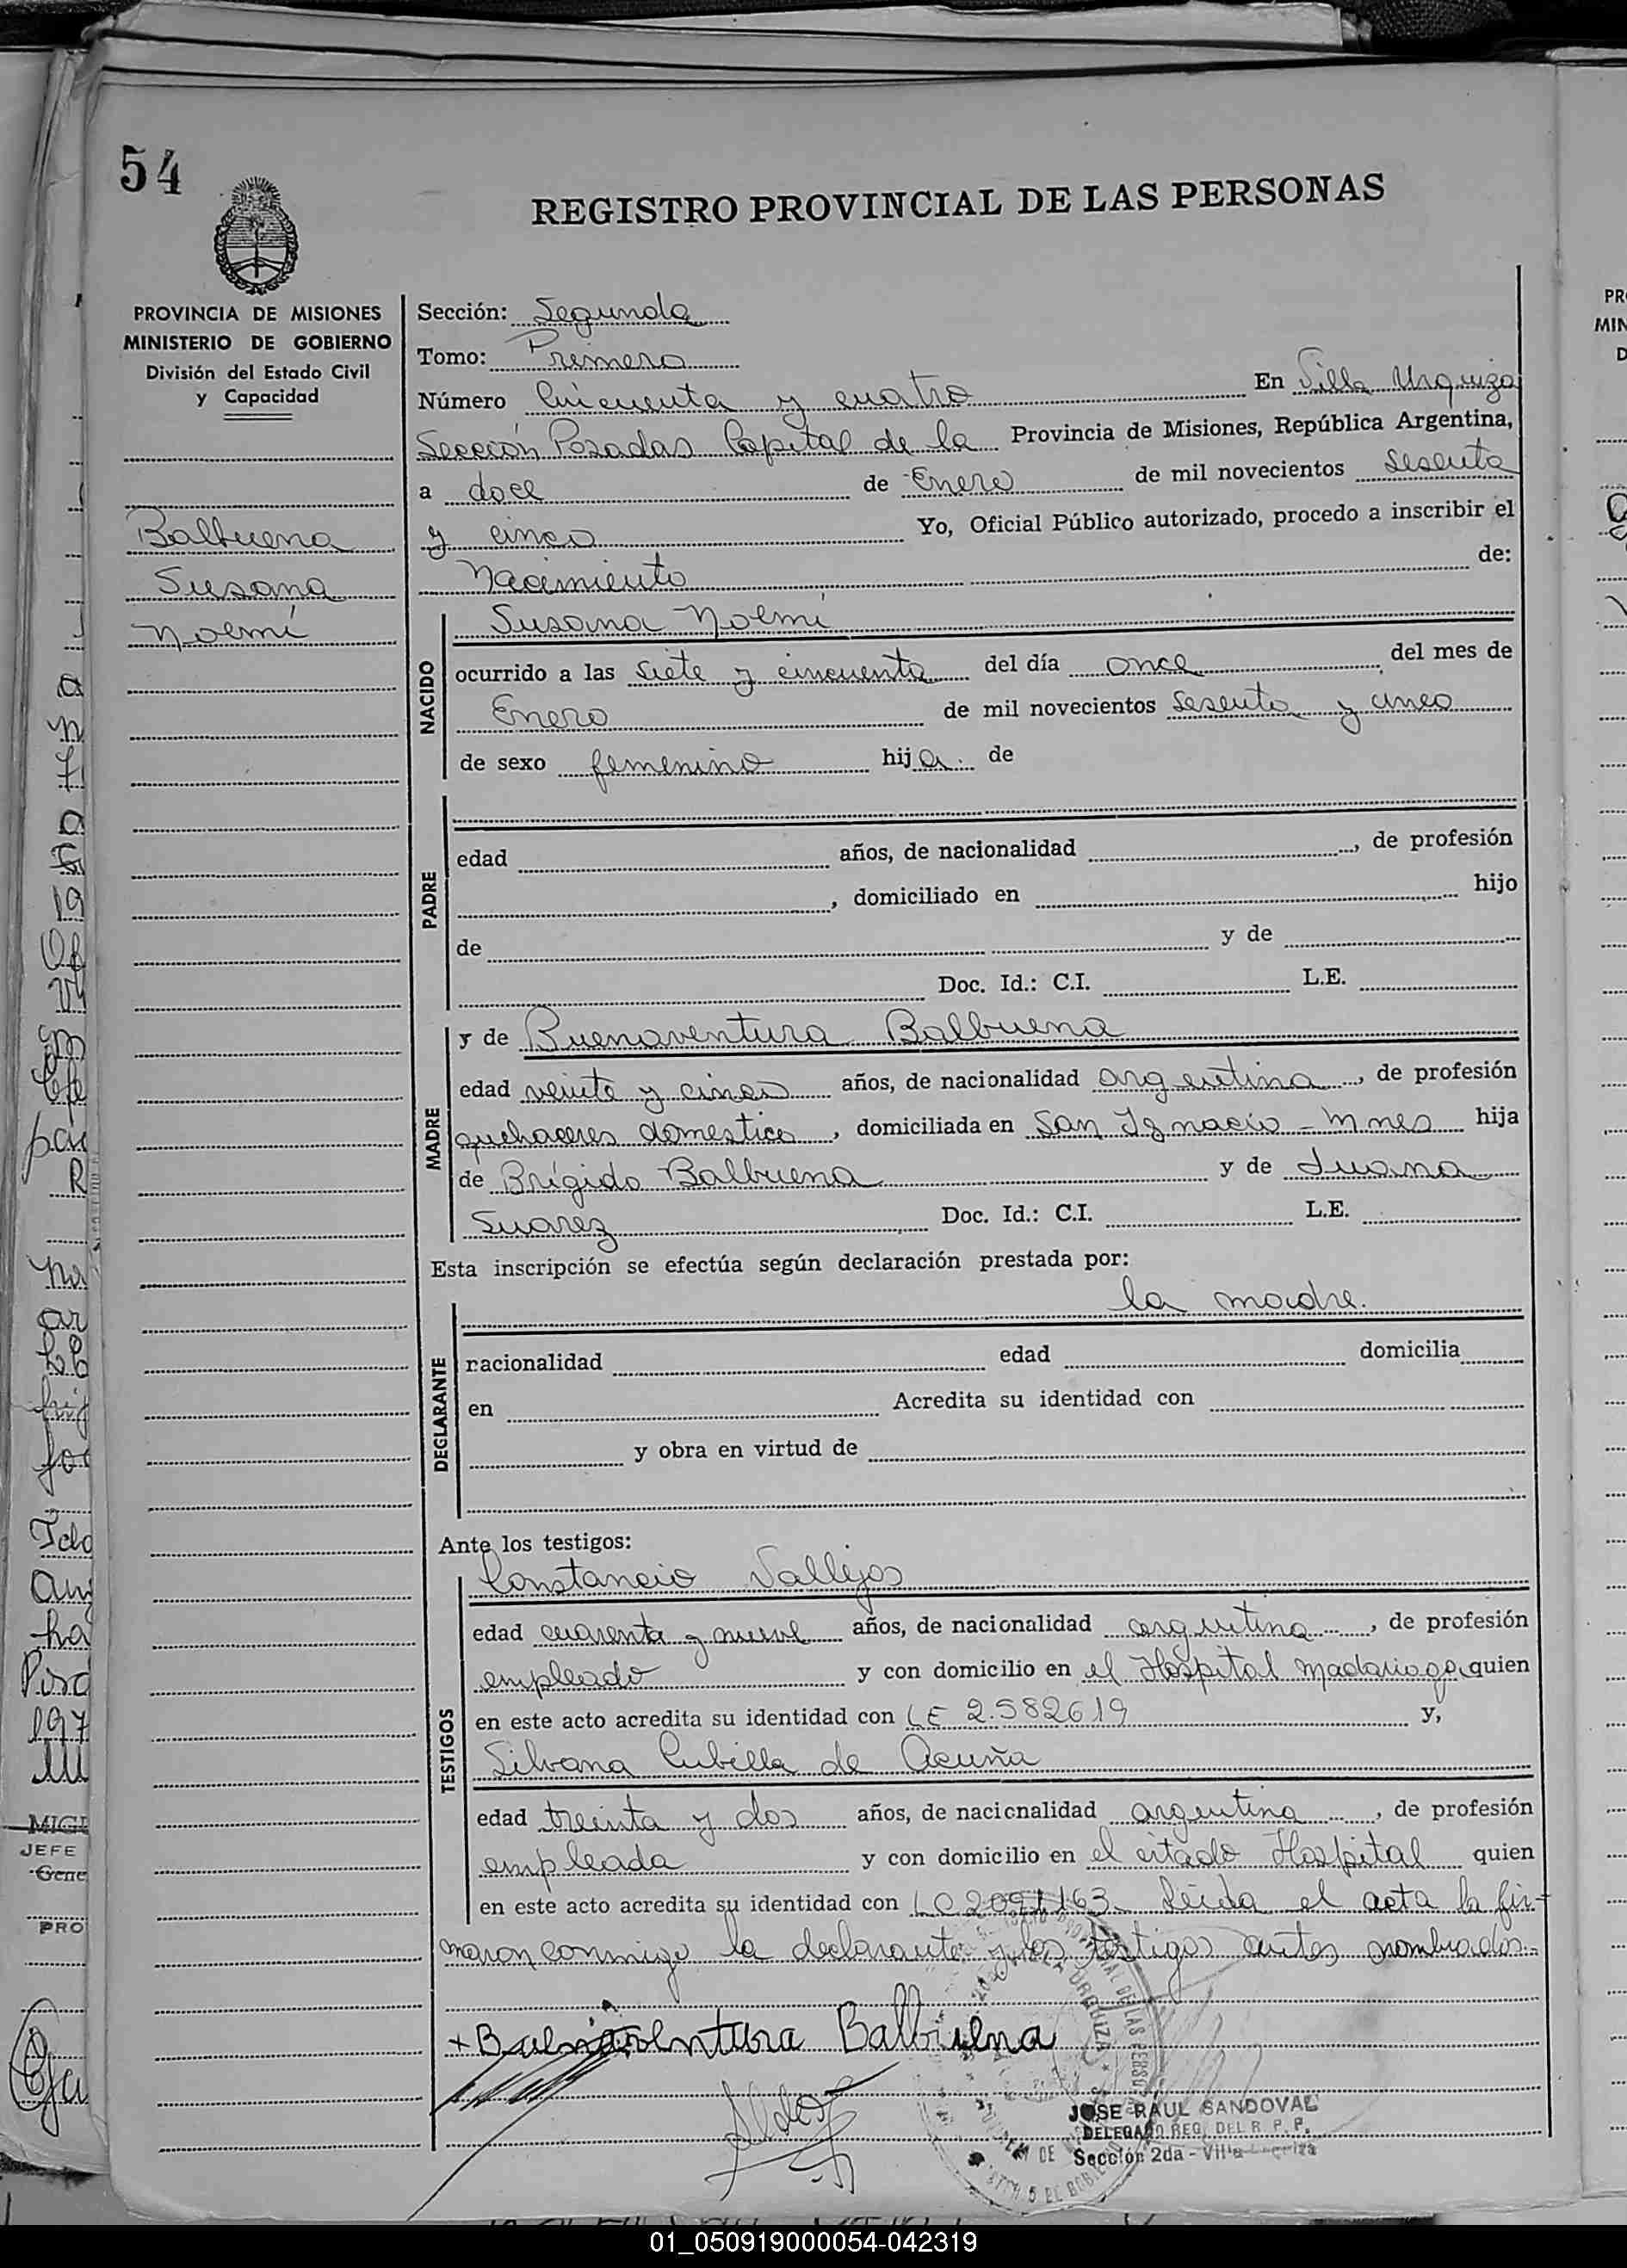 54
REGISTRO PROVINCIAL DE LAS PERSONAS
PROVINCIA DE MISIONES
MINISTERIO DE GOBIERNO
División del Estado Civil
y Capacidad
Balbuena
Susana
Noemí
Sección: Segunda
Tomo: Primero
Número Cincuenta y cuatro En Villa Urquiza
Sección Posadas Capital de la Provincia de Misiones, República Argentina,
a doce de Enero de mil novecientos sesenta
y cinco Yo, Oficial Público autorizado, procedo a inscribir el
Nacimiento de:
NACIDO
Susana Noemí
ocurrido a las siete y cincuenta del día once del mes de
Enero de mil novecientos sesenta y cinco
de sexo femenino hija de
PADRE
edad años, de nacionalidad , de profesión
, domiciliado en hijo
de y de
Doc. Id.: C.I. L.E.
MADRE
y de Buenaventura Balbuena
edad veinte y cinco años, de nacionalidad argentina, de profesión
quehaceres domestico, domiciliada en San Ignacio - Mnes hija
de Brígido Balbuena y de Juana
Suarez Doc. Id.: C.I. L.E.
Esta inscripción se efectúa según declaración prestada por:
la madre.
DECLARANTE
racionalidad edad domicilia
en Acredita su identidad con
y obra en virtud de
Ante los testigos:
TESTIGOS
Constancio Vallejos
edad cuarenta y nueve años, de nacionalidad argentina, de profesión
empleado y con domicilio en el Hospital Madariaga quien
en este acto acredita su identidad con LE 2.582619 y,
Silvana Cubilla de Acuña
edad treinta y dos años, de nacionalidad argentina, de profesión
empleada y con domicilio en el citado Hospital quien
en este acto acredita su identidad con LC 2091163. Leida el acta la fir-
maron conmigo la declarante y los testigos antes nombrados.-
+ Buenaventura Balbuena
JOSE RAUL SANDOVAL
DELEGADO REG. DEL R. P. P.
Sección 2da - Villa Urquiza
MIGU
JEFE
Gene
PRO
01_050919000054-042319